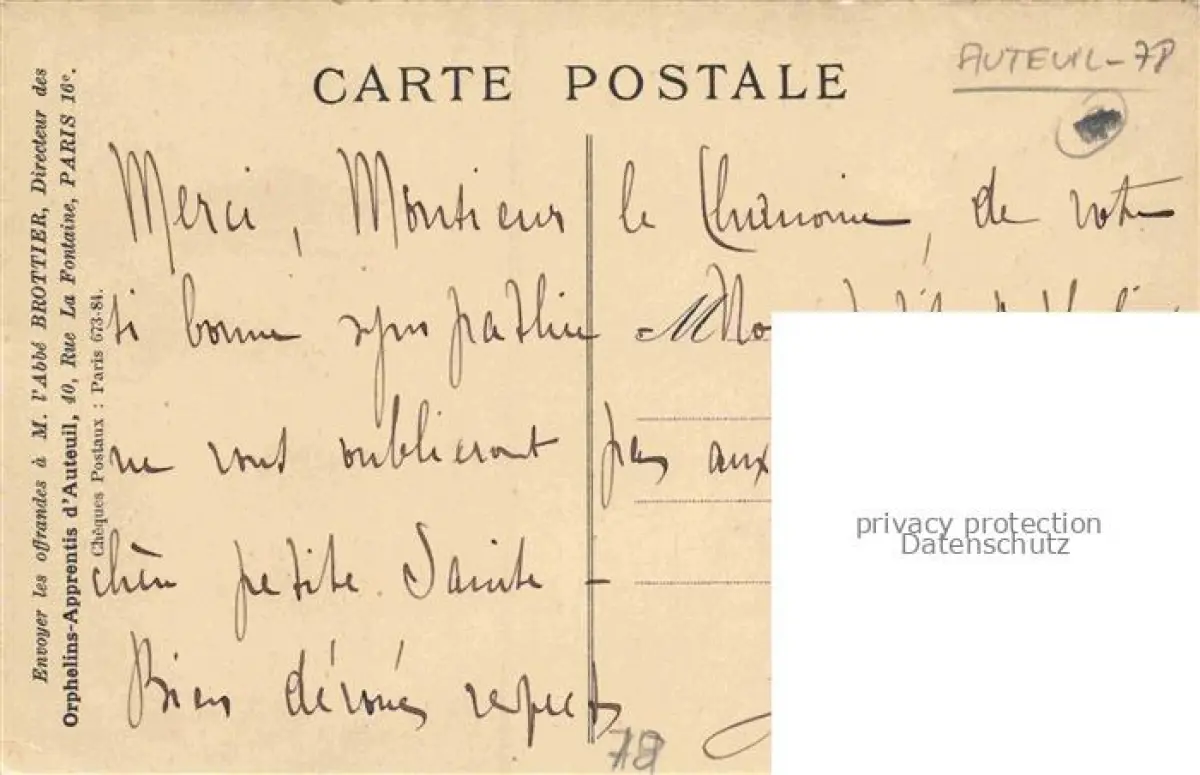 CARTE POSTALE
AUTEUIL - 78
Envoyer les offrandes à M. l'Abbé BROTTIER, Directeur des
Orphelins-Apprentis d'Auteuil, 40, Rue La Fontaine, PARIS 16e.
Chèques Postaux : Paris 673-84.
Merci, Monsieur le Chanoine, de votre
si bonne sympathie M
ne vous oublieront pas aux
chère petite Sainte -
Bien dévoués respects
78
privacy protection
Datenschutz